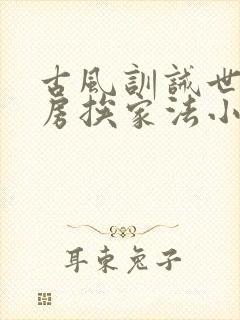 古風訓誡世
房挨家法小
耳東兔子